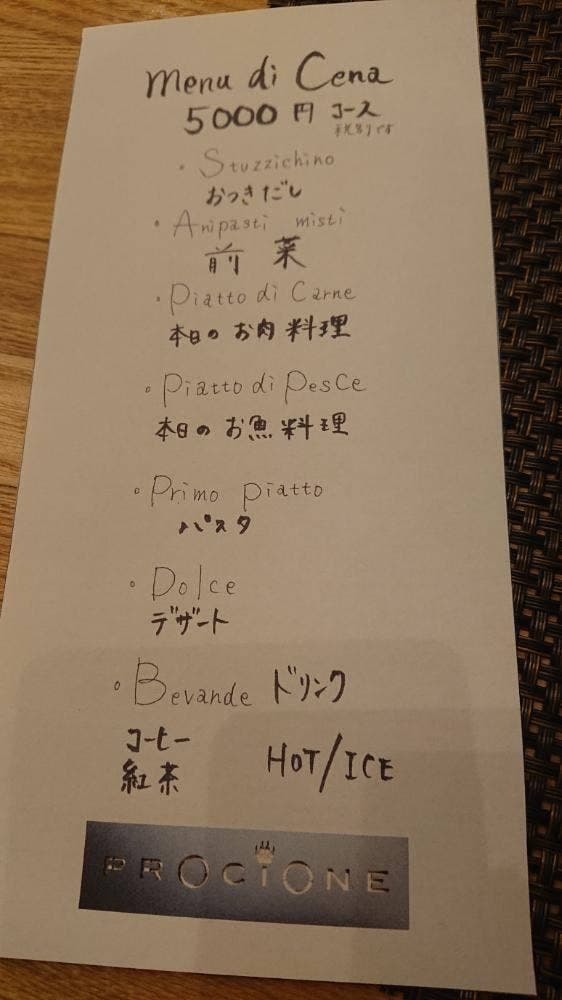 Menu di Cena
5000円 コース
税別です
・Stuzzichino
おつきだし
・Anipasti misti
前菜
・Piatto di Carne
本日のお肉料理
・Piatto di Pesce
本日のお魚料理
・Primo piatto
パスタ
・Dolce
デザート
・Bevande ドリンク
コーヒー
紅茶 HOT/ICE
PROCIONE